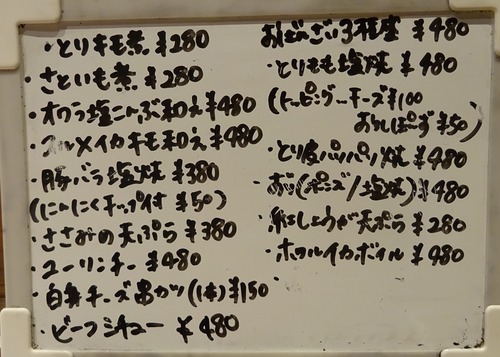 ・とりキモ煮 ¥280
・さといも煮 ¥280
・オクラ塩こんぶ和え ¥480
・スルメイカキモ和え ¥480
・豚バラ塩焼 ¥380
(にんにくチップ付 ¥50)
・ささみの天ぷら ¥380
・ユーリンチー ¥480
・白身チーズ串カツ(1本)¥150
・ビーフシチュー ¥480
おばんざい3種盛 ¥480
・とりもも塩焼 ¥480
(トッピング…チーズ¥100
おろしぽん酢 ¥50)
・とり皮パリパリ焼 ¥480
(ポンズ/塩焼)¥480
・紅しょうが天ぷら ¥280
・ホタルイカボイル ¥480